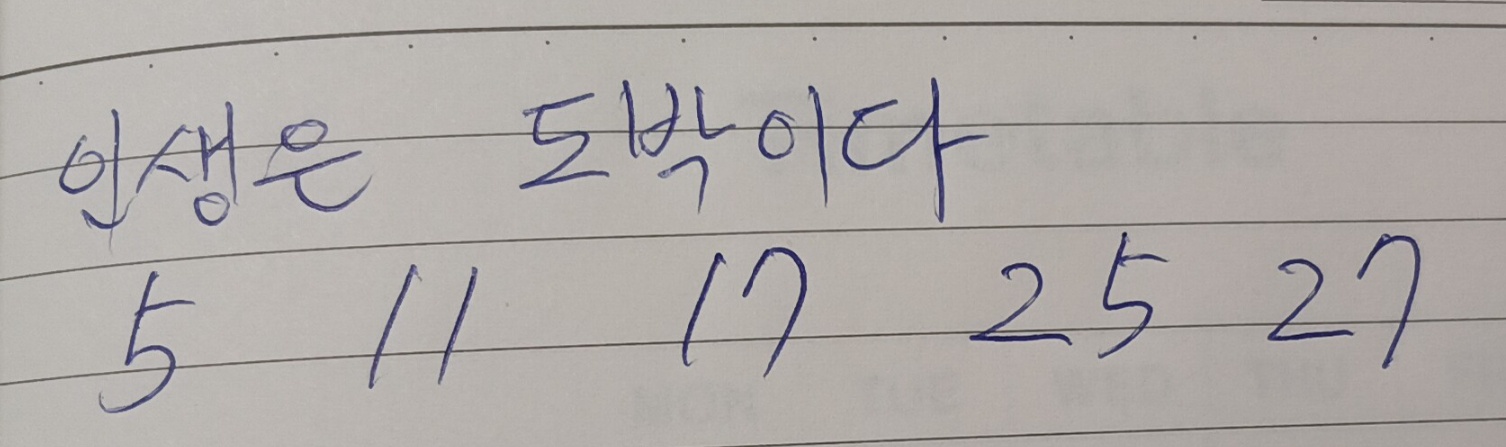 인생은 도박이다
5 11 17 25 27